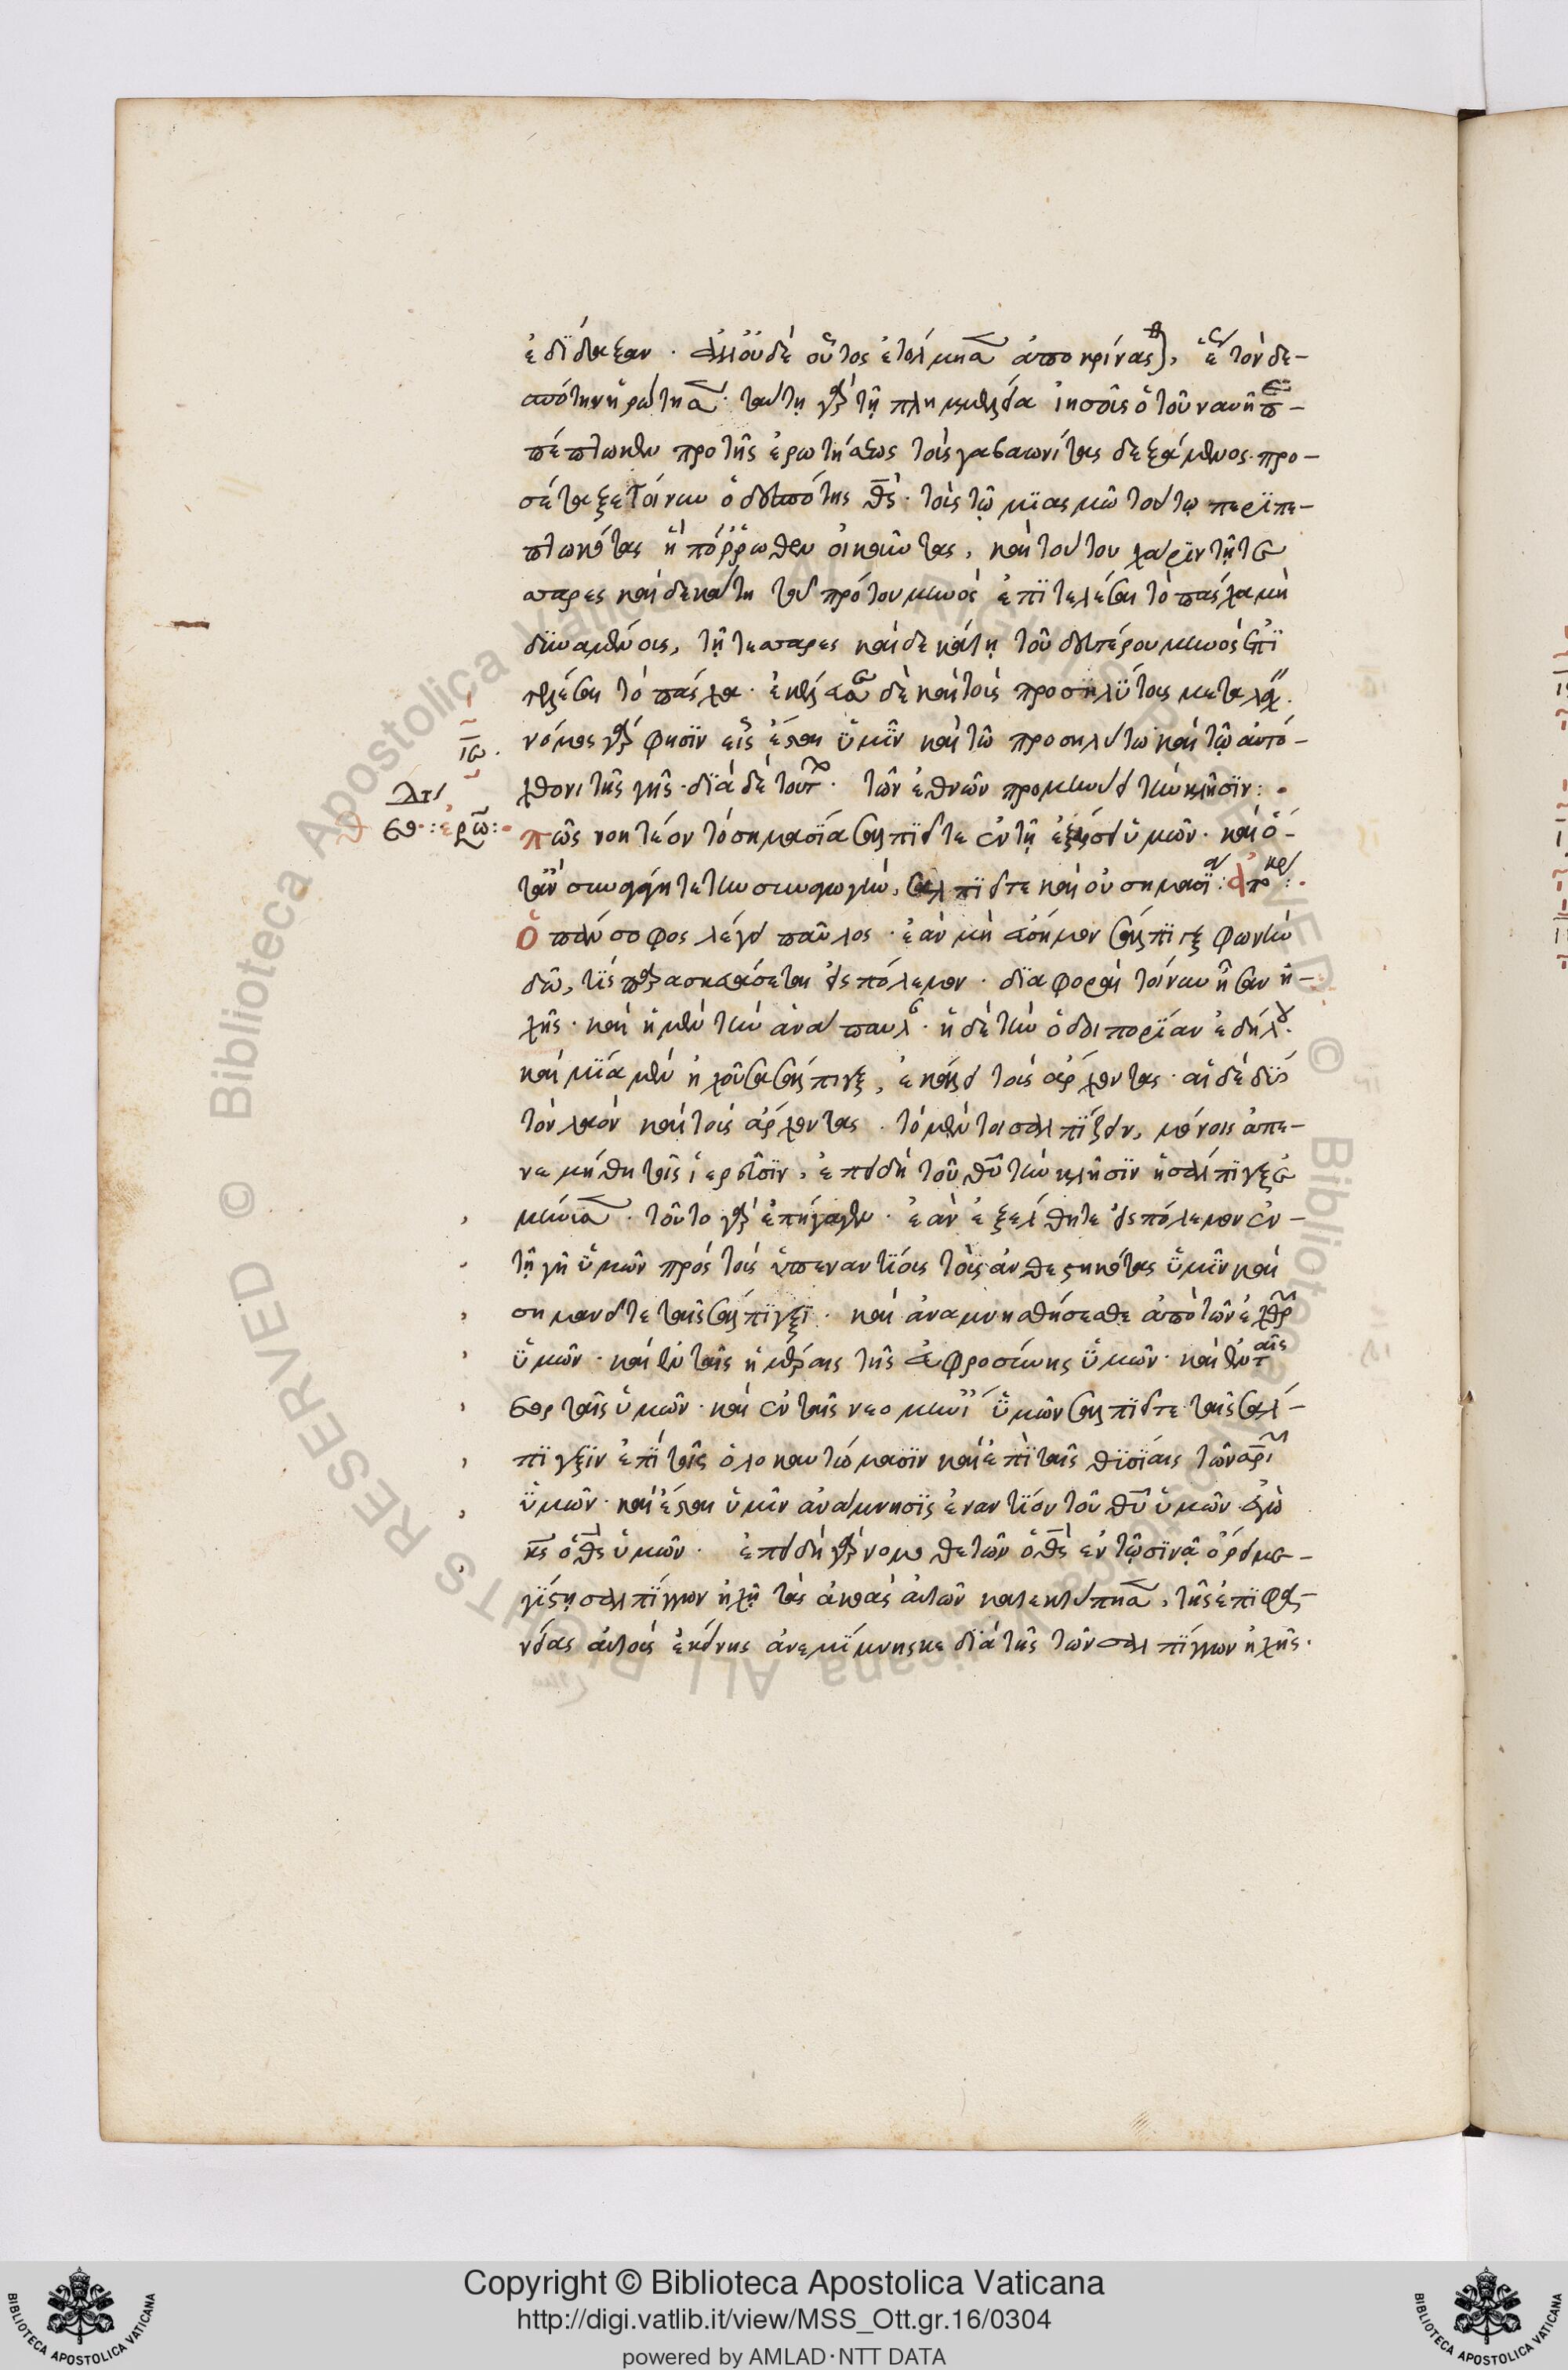 ἐδίδαξαν · ἀλλ' οὐδὲ οὗτος ἐτόλμησε ἀποκρίνασθαι, ἕως τὸν δε-
σπότην ἠρώτησε · ταύτη γὰρ τῆ πλημμελεία ἰησοῦς ὁ τοῦ ναυῆ περι-
πέπτωκεν προ τῆς ἐρωτήσεως τοὺς γαβαωνίτας δεξάμενος · προ-
σέταξε τοίνυν ὁ δεσπότης θς · τοὺς τῷ μϊασμῶ τούτῳ περϊπε-
πτωκότας ἢ πόρρωθεν οἰκοῦντας, καὶ τούτου χάρϊν τῆ τε
σσαρες καὶ δεκάτη τοῦ πρότου μηνὸς ἐπϊτελέσαι τὸ πάσχα μὴ
δυναμένους, τῆ τεσσαρες καὶ δεκάτη τοῦ δευτέρου μηνὸς ἐπϊ
τελέσαι τὸ πάσχα · ἐκέλευσε δὲ καὶ τοὺς προσηλϋτους μεταλαχ
νόμος γὰρ φησϊν εἷς ἔσται ὑμῖν καὶ τῶ προσηλύτω καὶ τῷ αὐτό-
χθονι τῆς γῆς · δϊὰ δὲ τούτ · τῶν ἐθνῶν προμηνύει τὴν κλῆσϊν :
πῶς νοητέον τὸ σημασία σαλπϊεῖτε ἐν τῆ ἐξάρσει ὑμῶν · καὶ ὅ-
ταν συναγάγητε τὴν συναγωγὴν, σαλπϊεῖτε καὶ οὐ σημασϊα : ἀποκρ :
Ὁ πάνσοφος λέγει παῦλος · ἐὰν μὴ εὔσημον σάλπϊγξ φωνὴν
δῶ, τίς παρασκευάσεται εἰς πόλεμον · δϊαφοραὶ τοίνυν ἦσαν ἠ-
χῆς · καὶ ἡ μὲν τὴν ἀνάπαυλαν · ἡ δὲ τὴν ὁδοιπορϊαν ἐδήλου ·
καὶ μϊα μὲν ἠχοῦσα σάλπιγξ, ἐκάλει τοὺς ἄρχοντας · αἱ δὲ δύο
τὸν λαὸν καὶ τοὺς ἄρχοντας · τὸ μέντοι σαλπϊζειν, μόνοις ἀπε-
νεμήθη τοῖς ἱερεῦσϊν, ἐπειδὴ τοῦ θυ τὴν κλῆσϊν ἡ σάλπϊγξ ἐ
μήνυσε · τοῦτο γὰρ ἐπήγαγεν · ἐὰν ἐξελθητε εἰς πόλεμον ἐν
τῆ γῆ ὑμῶν πρὸς τοὺς ὑπεναντϊους τοὺς ἀνθεστηκότας ὑμῖν καὶ
σημανεῖτε ταῖς σάλπϊγξϊ · καὶ ἀναμνησθήσεσθε ἀπὸ τῶν ἐχθρ
ὑμῶν · καὶ ἐν ταῖς ἡμέραις τῆς εὐφροσύνης ὑμῶν · καὶ ἐν ταῖς
ἑορταῖς ὑμῶν · καὶ ἐν ταῖς νεομηνϊ ὑμῶν σαλπϊεῖτε ταῖς σάλ-
πϊγξϊν ἐπὶ τοῖς ὁλοκαυτώμασϊν καὶ ἐπὶ ταῖς θϋσϊαις τῶν σρι
ὑμῶν · καὶ ἔσται ὑμῖν ἀνάμνησϊς ἐναντϊον τοῦ θυ ὑμῶν ἐγὼ
κς ὁ θς ὑμῶν · ἐπειδὴ γὰρ νομοθετῶν ὁ θς ἐν τῷ σϊνᾶ ὄρει με-
γϊστη σαλπϊγγων ἠχῆ τὰς ἀκοὰς αὐτῶν κατεκτύπησε, τῆς ἐπιφα-
νείας αὐτοὺς ἐκείνης ἀνεμϊμνησκε δϊὰ τῆς τῶν σαλπϊγγων ἠχῆς ·
Copyright © Biblioteca Apostolica Vaticana
http://digi.vatlib.it/view/MSS_Ott.gr.16/0304
powered by AMLAD·NTT DATA